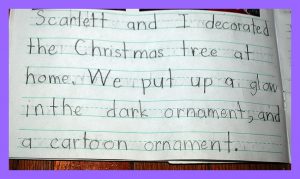 Scarlett and I decorated
the Christmas tree at
home. We put up a glow
in the dark ornament, and
a cartoon ornament.